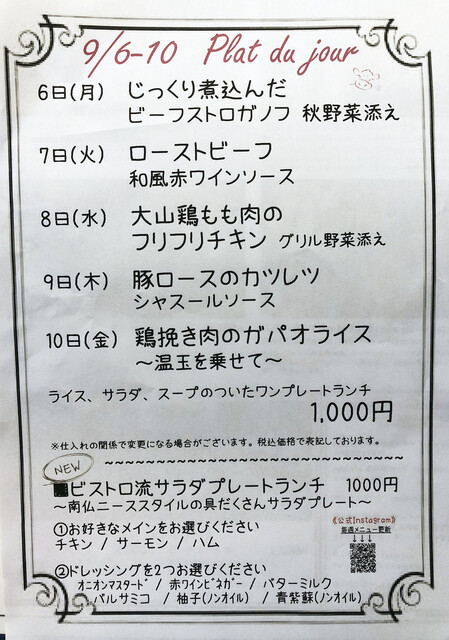 9/6-10 Plat du jour
6日(月) じっくり煮込んだ
ビーフストロガノフ 秋野菜添え
7日(火) ローストビーフ
和風赤ワインソース
8日(水) 大山鶏もも肉の
フリフリチキン グリル野菜添え
9日(木) 豚ロースのカツレツ
シャスールソース
10日(金) 鶏挽き肉のガパオライス
〜温玉を乗せて〜
ライス、サラダ、スープのついたワンプレートランチ
1,000円
※仕入れの関係で変更になる場合がございます。税込価格で表記しております。
NEW
■ビストロ流サラダプレートランチ 1000円
〜南仏ニーススタイルの具だくさんサラダプレート〜
①お好きなメインをお選びください
チキン / サーモン / ハム
《公式Instagram》
毎週メニュー更新
↓↓↓
②ドレッシングを2つお選びください
オニオンマスタード / 赤ワインビネガー / バターミルク
バルサミコ / 柚子(ノンオイル) / 青紫蘇(ノンオイル)